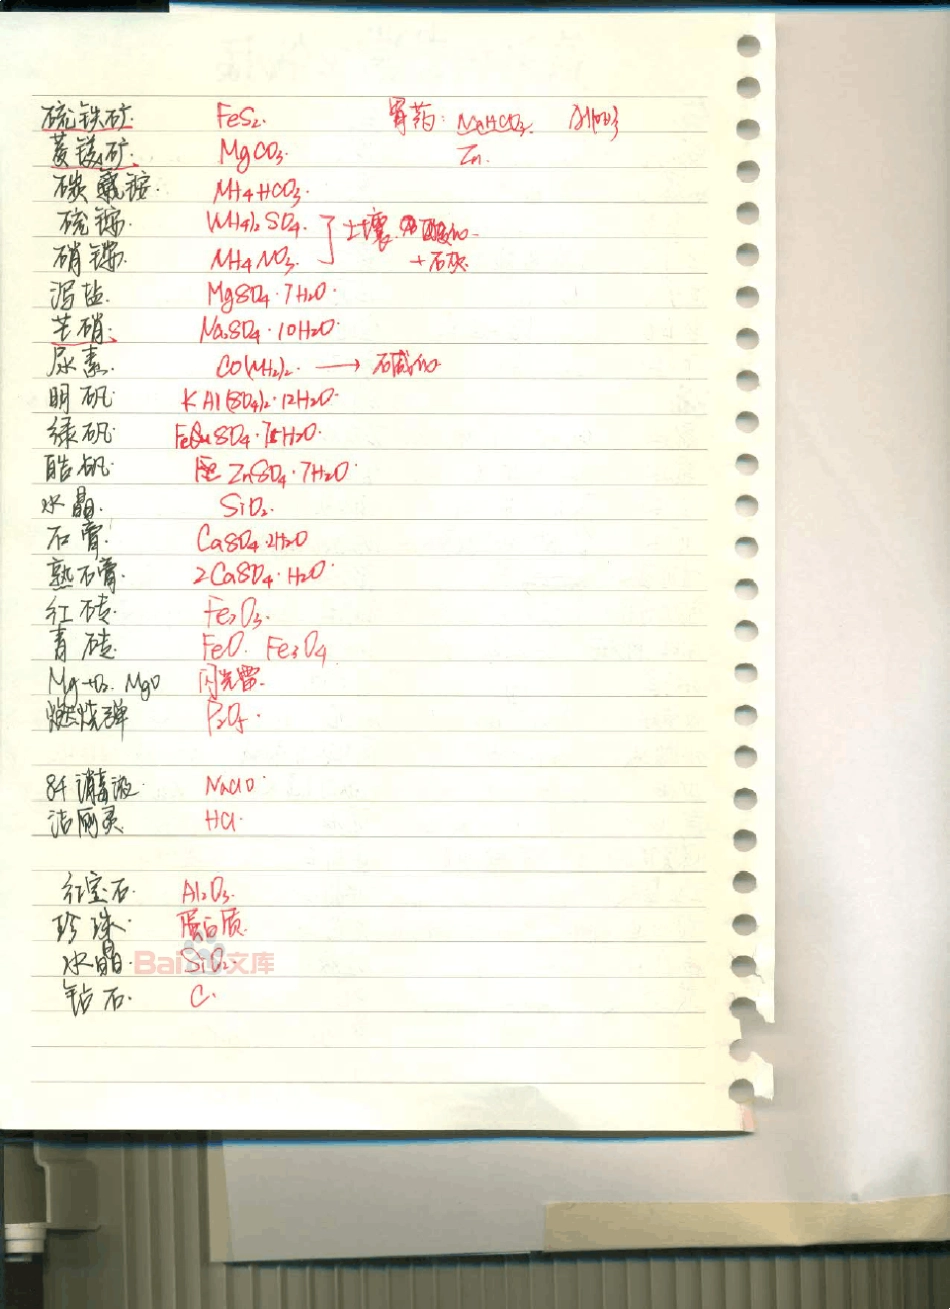 硫铁矿. FeS₂. 胃药: NaHCO₃. Al(OH)₃
菱镁矿. MgCO₃. Zn.
碳氢铵. NH₄HCO₃.
硫铵. (NH₄)₂SO₄. 土壤 酸化
硝铵. NH₄NO₃. +石灰.
泻盐. MgSO₄·7H₂O.
芒硝. Na₂SO₄·10H₂O.
尿素. CO(NH₂)₂. → 碱化
明矾. KAl(SO₄)₂·12H₂O.
绿矾. FeSO₄·7H₂O.
皓矾. ZnSO₄·7H₂O.
水晶. SiO₂.
石膏. CaSO₄·2H₂O
熟石膏. 2CaSO₄·H₂O.
红砖. Fe₂O₃.
青砖. FeO. Fe₃O₄
Mg+O₂. MgO 闪光雷.
燃烧弹 P₂O₅.
84消毒液. NaClO.
洁厕灵. HCl.
红宝石. Al₂O₃.
珍珠. 蛋白质.
水晶. SiO₂.
Bai 文库
钻石. C.